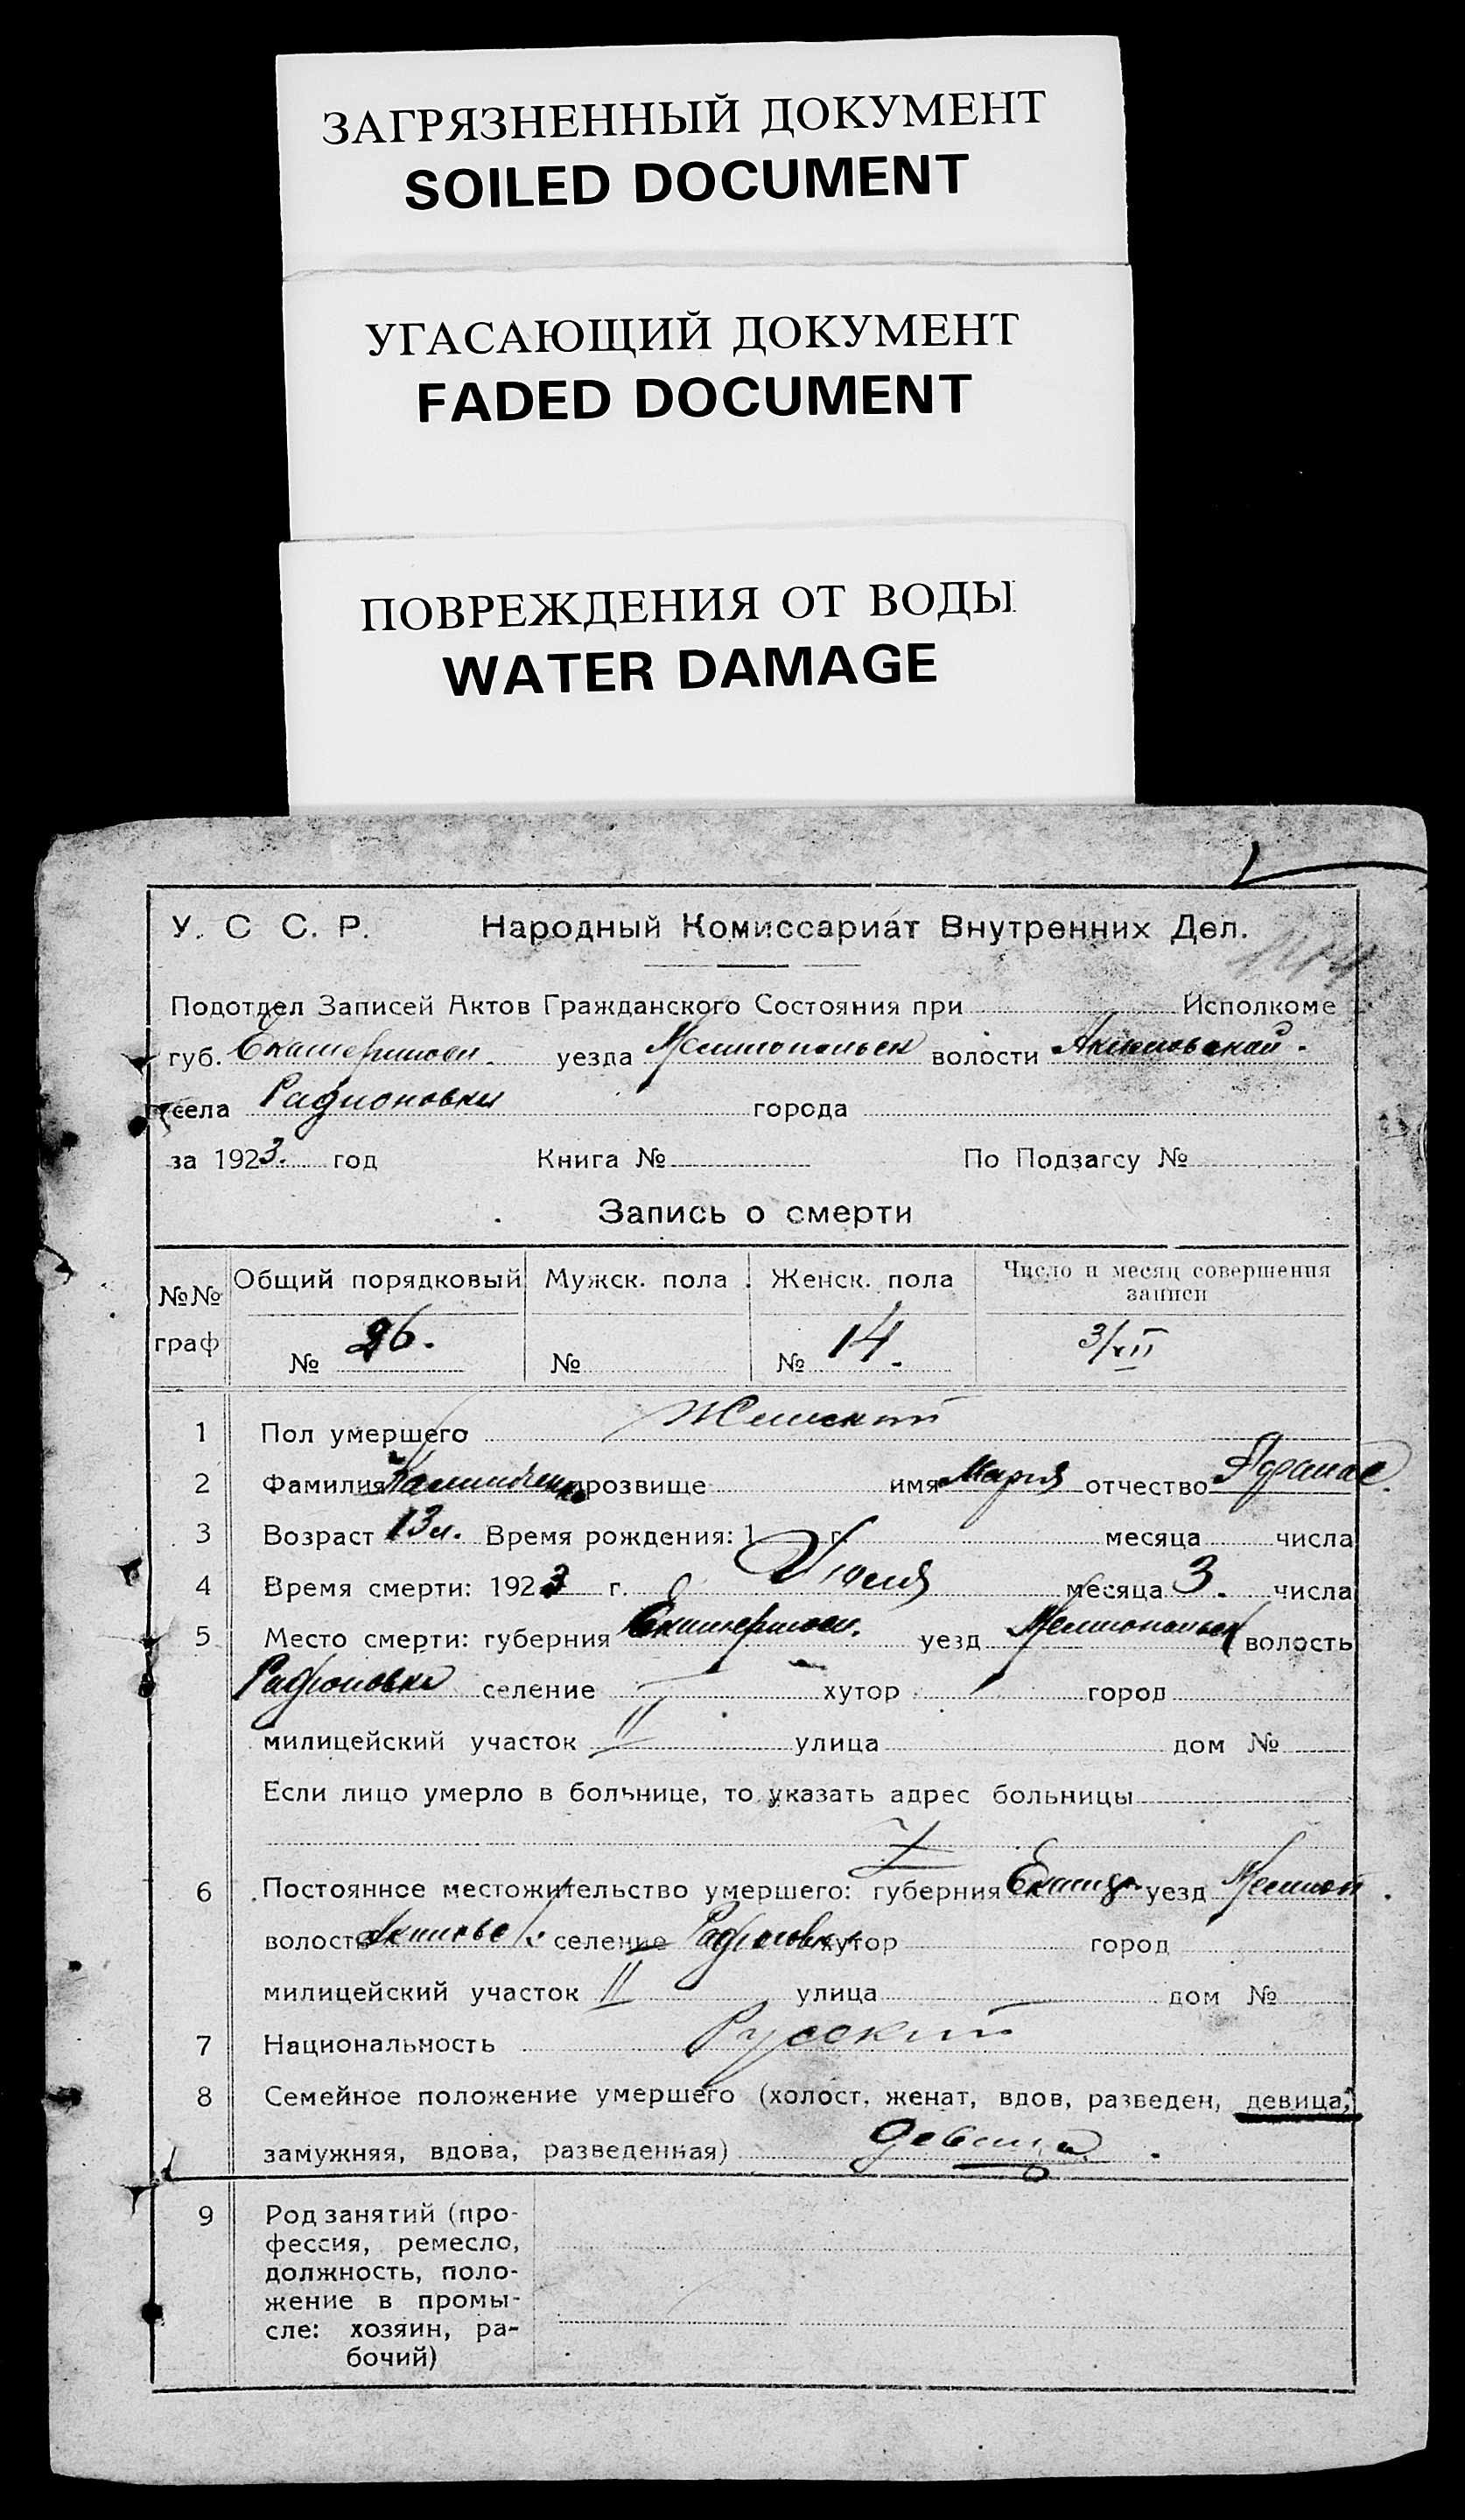 ЗАГРЯЗНЕННЫЙ ДОКУМЕНТ
SOILED DOCUMENT
УГАСАЮЩИЙ ДОКУМЕНТ
FADED DOCUMENT
ПОВРЕЖДЕНИЯ ОТ ВОДЫ
WATER DAMAGE
У. С С. Р. Народный Комиссариат Внутренних Дел.
Подотдел Записей Актов Гражданского Состояния при Исполкоме
губ. Екатериносл. уезда Мелитопольск волости Акимовской.
села Радионовки города
за 1923. год Книга № По Подзагсу №
Запись о смерти
№№ граф Общий порядковый Мужск. пола Женск. пола Число и месяц совершения записи
№ 26. № № 14. 3/XII
1 Пол умершего Женский
2 Фамилия прозвище имя Мария отчество Афанас
3 Возраст 13 л. Время рождения: 1 г. месяца числа
4 Время смерти: 1923 г. Июля месяца 3. числа
5 Место смерти: губерния Екатеринosл. уезд Мелитопольск волость
Радионовка селение хутор город
милицейский участок II улица дом №
Если лицо умерло в больнице, то указать адрес больницы
6 Постоянное местожительство умершего: губерния уезд Мелитоп
волость селение Радионовка хутор город
милицейский участок II улица дом №
7 Национальность Русский
8 Семейное положение умершего (холост, женат, вдов, разведен, девица,
замужняя, вдова, разведенная) девица
9 Род занятий (про-
фессия, ремесло,
должность, поло-
жение в промы-
сле: хозяин, ра-
бочий)